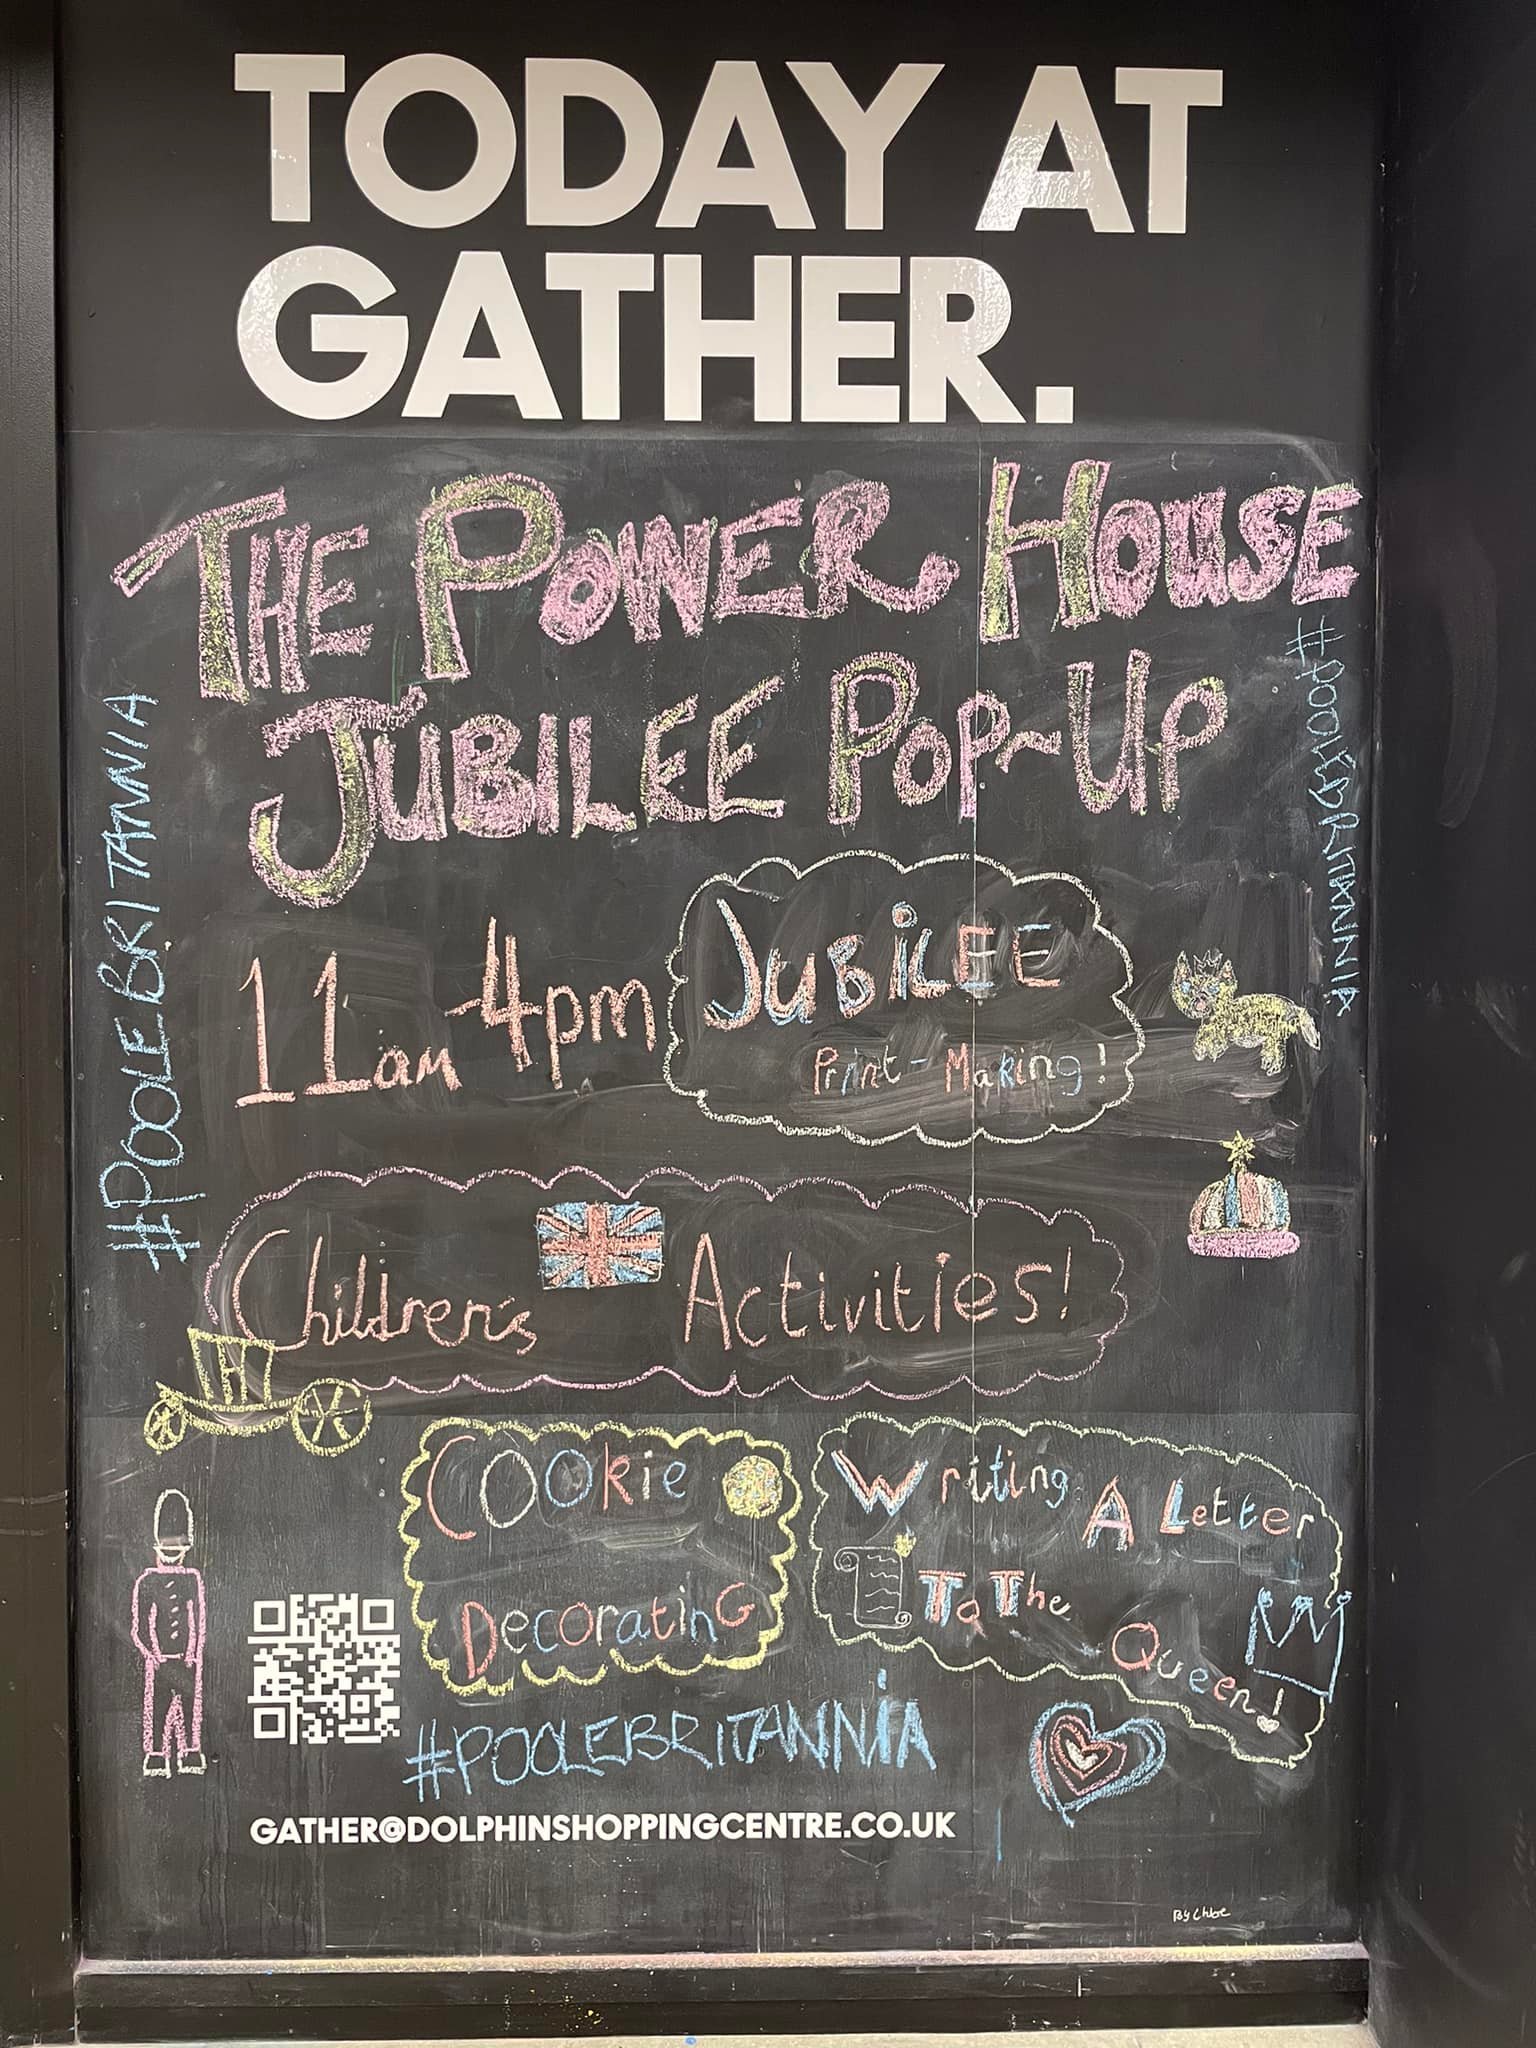 TODAY AT
GATHER.
THE POWER HOUSE
JUBILEE POP-UP
#POOLEBRITANNIA
#POOLEBRITANNIA
11am-4pm
JUBiLEE
Print-Making!
Children's Activities!
COOkie
DecoratinG
Writing A Letter
To The
Queen!
#POOLEBRITANNiA
GATHER@DOLPHINSHOPPINGCENTRE.CO.UK
By Chloe